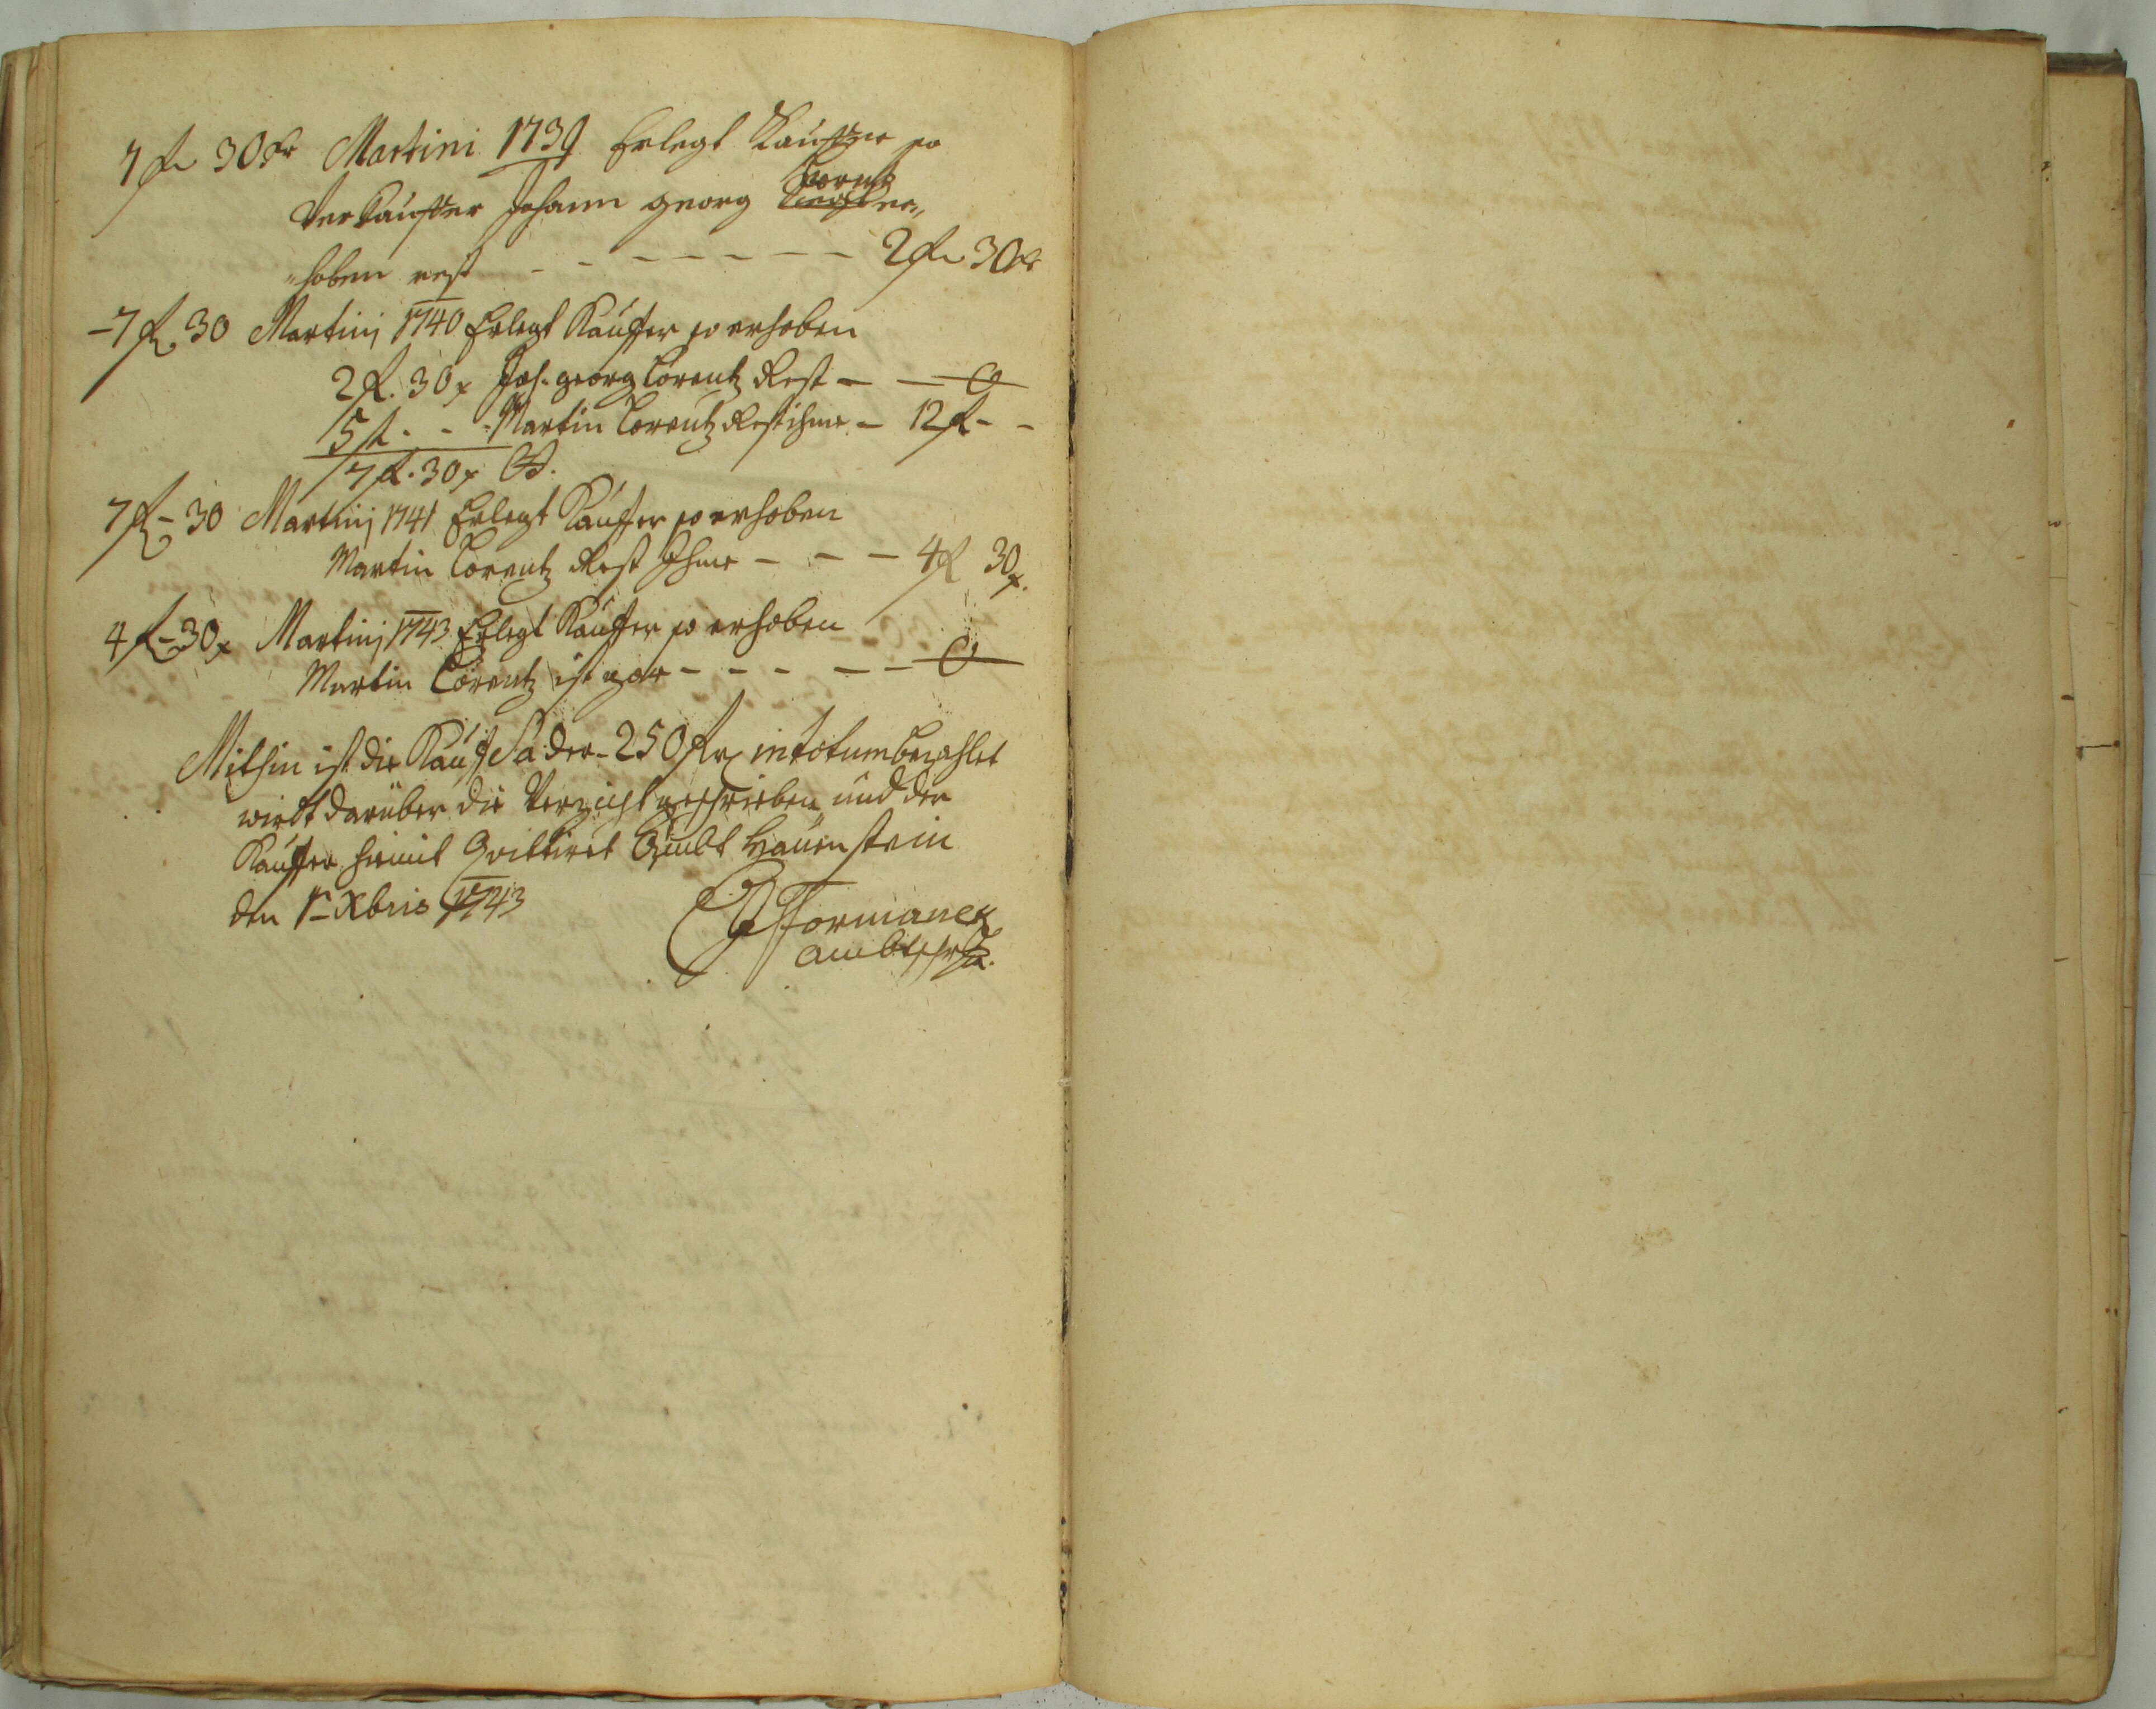 7 fl 30 xr Martini 1739 Erlegt Kauffer so
Verkauffer Johann georg Lorentz er„
„hoben rest - - - - - - - 2 fl 30 xr
- 7 fl 30 Martinj 1740 Erlegt Kauffer so erhoben
2 fl. 30 x Joh. georg Lorentz Rest - - 0
5 fl. - - Martin Lorentz Rest ihme - 12 fl - -
7 fl. 30 x
7 fl - 30 Martinj 1741 Erlegt Kauffer so erhoben
Martin Lorentz Rest Ihme - - - 4 fl 30 x.
4 fl - 30 x Martinj 1743 Erlegt Kauffer so erhoben
Martin Lorentz ist gar - - - - - 0
Mithin ist die Kauf Sa der 250 fl in totum bezahlet
wirdt darüber die Verzicht geschrieben und der
Kauffer hiemit Qvittiret Ambt Hauenstein
den 1t Xbris 1743
Formanek
Ambtschr.